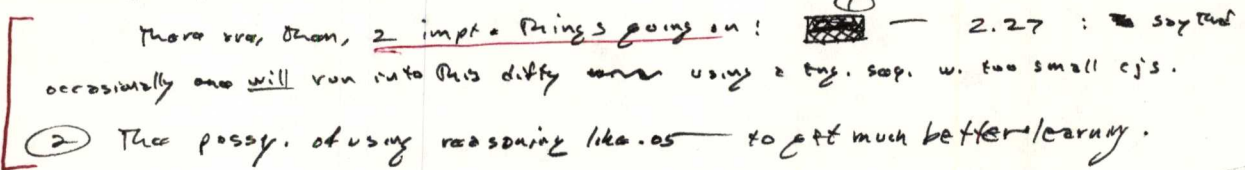 There are, then, 2 impt. things going on: ① — 2.27 : say that
occasionally one will run into this diffy using a tng. seq. w. too small cjs.
② The possy. of using reasoning like .05 — to get much better learning.